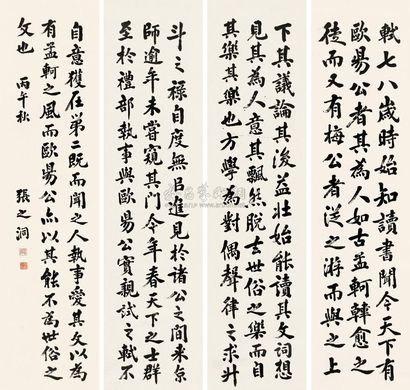 軾七八歲知讀書聞今天下有
歐陽公者其為人如古孟軻韓愈之
徒而又有梅公者從之游而與之上
下其議論其後益壯始能讀其文詞想
見其為人意其飄然脫去世俗之樂而自
其樂其樂也方學為對偶聲律之求升
斗之祿自度無㠯進見於諸公之間來京
師逾年未嘗窺其門今年春天下之士群
至於禮部執事與歐陽公實親試之軾不
自意獲在第二既而聞之人執事愛其文以為
有孟軻之風而歐陽公亦以其能不為世俗之
文也 丙午秋 張之洞